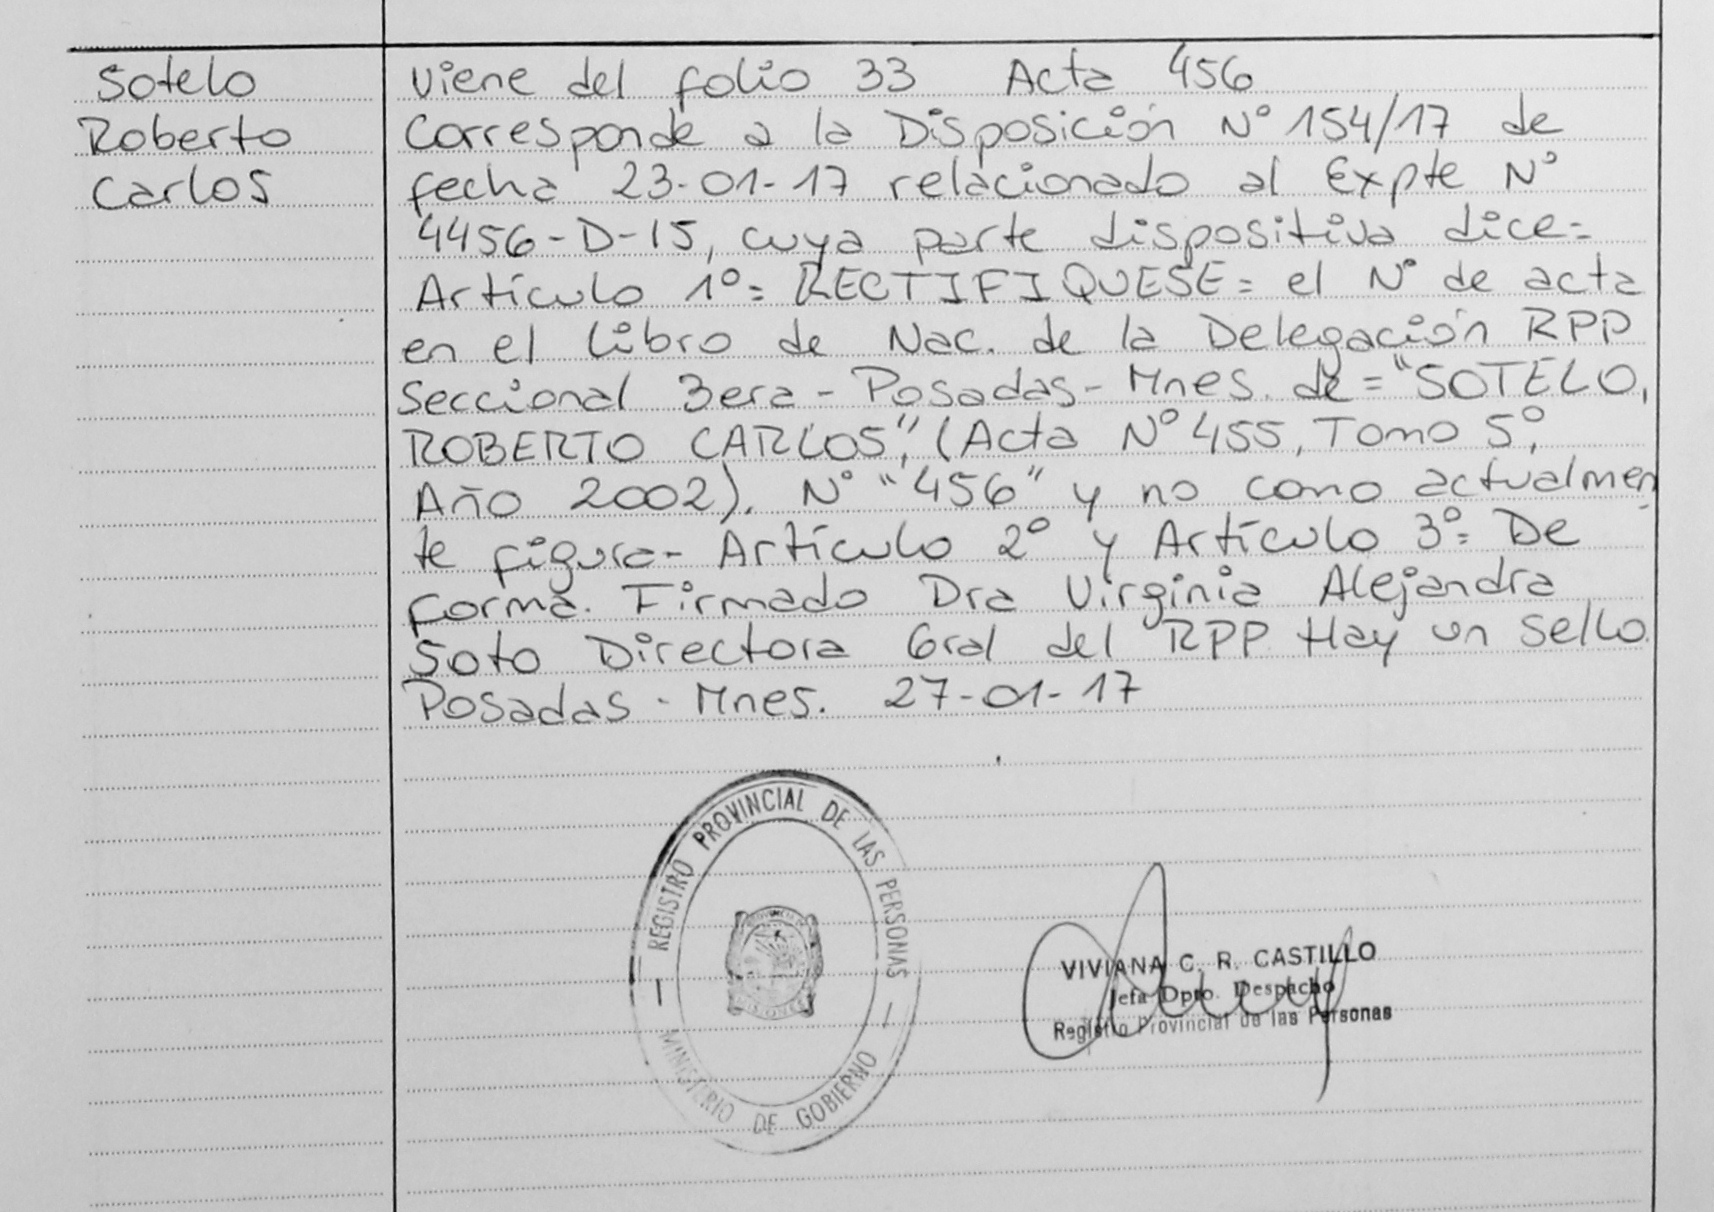 Sotelo
Roberto
Carlos
Viene del folio 33 Acta 456
Corresponde a la Disposición N° 154/17 de
fecha 23-01-17 relacionado al Expte N°
4456-D-15, cuya parte dispositiva dice=
Artículo 1°= RECTIFIQUESE= el N° de acta
en el libro de Nac. de la Delegación RPP
Seccional 3era - Posadas - Mnes. de = "SOTELO,
ROBERTO CARLOS", (Acta N° 455, Tomo 5°,
Año 2002). N° "456" y no como actualmen
te figura- Artículo 2° y Artículo 3°= De
forma. Firmado Dra Virginia Alejandra
Soto Directora Gral del RPP Hay un sello.
Posadas - Mnes. 27-01-17
REGISTRO PROVINCIAL DE LAS PERSONAS
MINISTERIO DE GOBIERNO
VIVIANA C. R. CASTILLO
Jefa Dpto. Despacho
Registro Provincial de las Personas